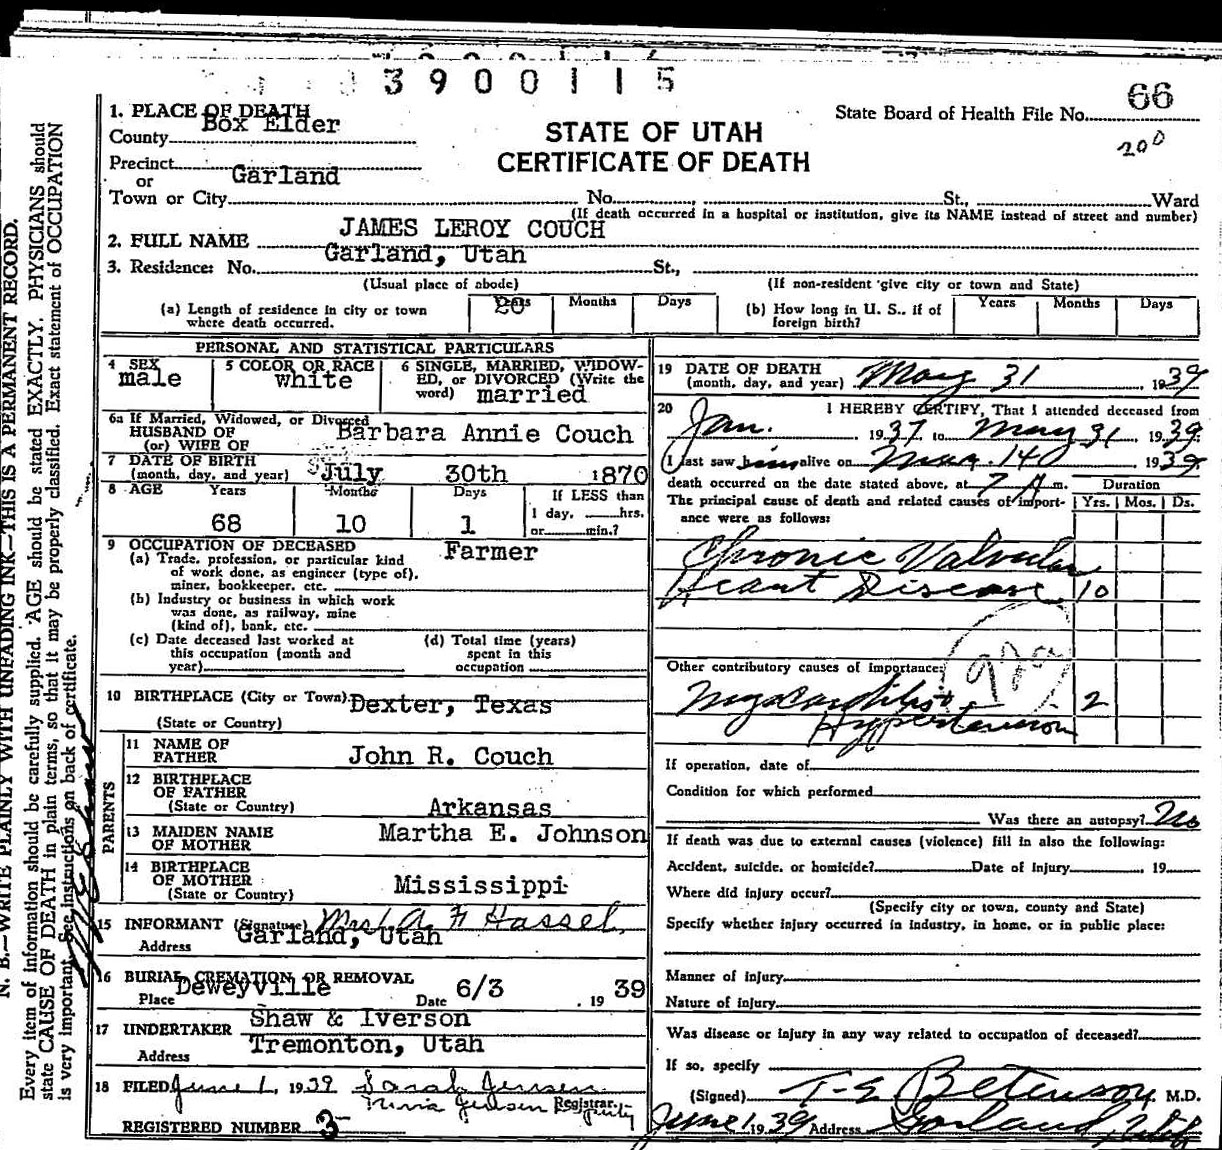 3900115
66
State Board of Health File No.
200
1. PLACE OF DEATH
County Box Elder
STATE OF UTAH
CERTIFICATE OF DEATH
Precinct
or Garland
Town or City No. St., Ward
(If death occurred in a hospital or institution, give its NAME instead of street and number)
2. FULL NAME JAMES LEROY COUCH
3. Residence: No. Garland, Utah St.,
(Usual place of abode) (If non-resident give city or town and State)
(a) Length of residence in city or town where death occurred. 20 Months Days
(b) How long in U. S., if of foreign birth? Years Months Days
PERSONAL AND STATISTICAL PARTICULARS
4 SEX male
5 COLOR OR RACE white
6 SINGLE, MARRIED, WIDOWED, or DIVORCED (Write the word) married
6a If Married, Widowed, or Divorced
HUSBAND OF
(or) WIFE OF Barbara Annie Couch
7 DATE OF BIRTH
(month, day, and year) July 30th 1870
8 AGE Years Months Days If LESS than
1 day, hrs.
68 10 1 or min.?
9 OCCUPATION OF DECEASED Farmer
(a) Trade, profession, or particular kind
of work done, as engineer (type of),
miner, bookkeeper, etc.
(b) Industry or business in which work
was done, as railway, mine
(kind of), bank, etc.
(c) Date deceased last worked at
this occupation (month and
year)
(d) Total time (years)
spent in this
occupation
10 BIRTHPLACE (City or Town) Dexter, Texas
(State or Country)
PARENTS
11 NAME OF
FATHER John R. Couch
12 BIRTHPLACE
OF FATHER
(State or Country) Arkansas
13 MAIDEN NAME
OF MOTHER Martha E. Johnson
14 BIRTHPLACE
OF MOTHER
(State or Country) Mississippi
15 INFORMANT (Signature) Mrs. A F Hassel
Address Garland, Utah
16 BURIAL, CREMATION OR REMOVAL
Place Deweyville Date 6/3 . 19 39
17 UNDERTAKER Shaw & Iverson
Address Tremonton, Utah
18 FILED June 1, 1939 Sarah Jensen
Registrar.
REGISTERED NUMBER 3
19 DATE OF DEATH
(month, day, and year) May 31, 1939
20 I HEREBY CERTIFY, That I attended deceased from
Jan. 1937 to May 31, 1939.
I last saw him alive on 14 1939
death occurred on the date stated above, at 7 A m.
Duration
The principal cause of death and related causes of importance were as follows:
Yrs. Mos. Ds.
Chronic Valvular
Heart Disease 10
Other contributory causes of importance:
Myocarditis + 2
Hypertension
If operation, date of
Condition for which performed
Was there an autopsy? No
If death was due to external causes (violence) fill in also the following:
Accident, suicide, or homicide? Date of Injury 19
Where did injury occur?
(Specify city or town, county and State)
Specify whether injury occurred in industry, in home, or in public place:
Manner of injury
Nature of injury
Was disease or injury in any way related to occupation of deceased?
If so, specify
(Signed) T-E Betenson, M.D.
June 1, 1939 Address Garland, Utah
N. B.—WRITE PLAINLY WITH UNFADING INK—THIS IS A PERMANENT RECORD.
Every item of information should be carefully supplied. AGE should be stated EXACTLY. PHYSICIANS should
state CAUSE OF DEATH in plain terms, so that it may be properly classified. Exact statement of OCCUPATION
is very important. See instructions on back of certificate.